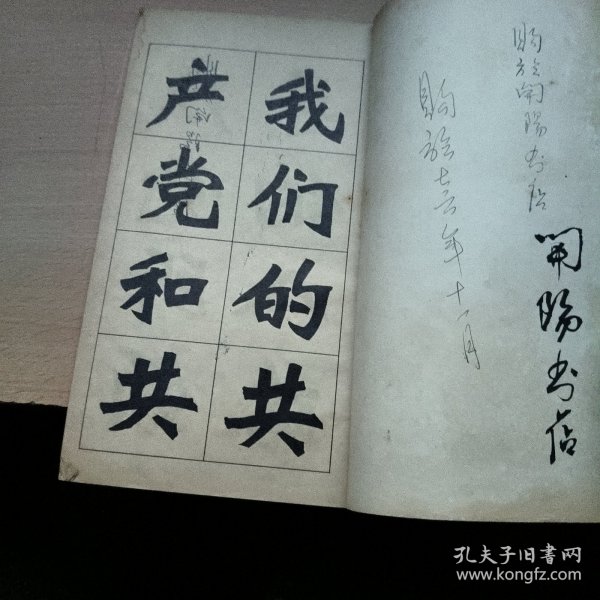 购於開陽书店
购於七六年十一月
開陽书店
我们的共
产党和共
孔夫子旧书网
www.kongfz.com